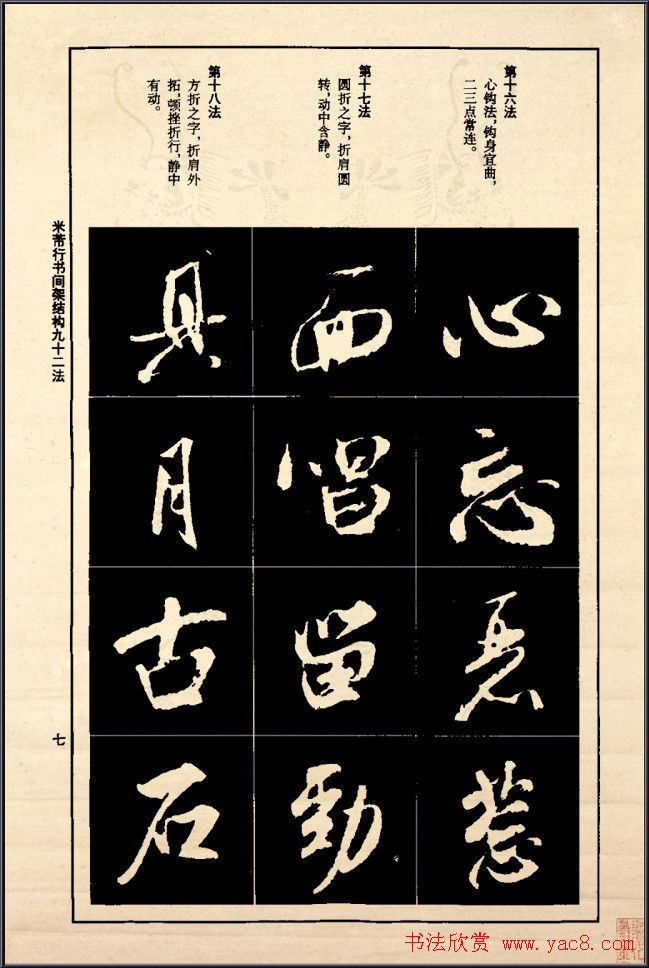 第十六法
心钩法，钩身宜曲，
二三点常连。
心忘
第十七法
圆折之字，折肩圆
转，动中含静。
而唱留勁
第十八法
方折之字，折肩外
拓，顿挫折行，静中
有动。
具月古石
米芾行书间架结构九十二法
七
书法欣赏 www.yac8.com